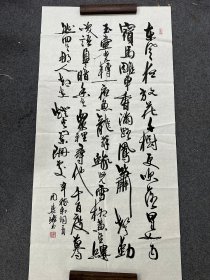 東風夜放花千樹更吹落星如雨
寶馬雕車香滿路鳳簫聲動
玉壺光轉一夜魚龍舞蛾兒雪柳黃金縷
笑語盈盈暗香去衆裏尋他千百度驀
然回首那人却在燈火闌珊處